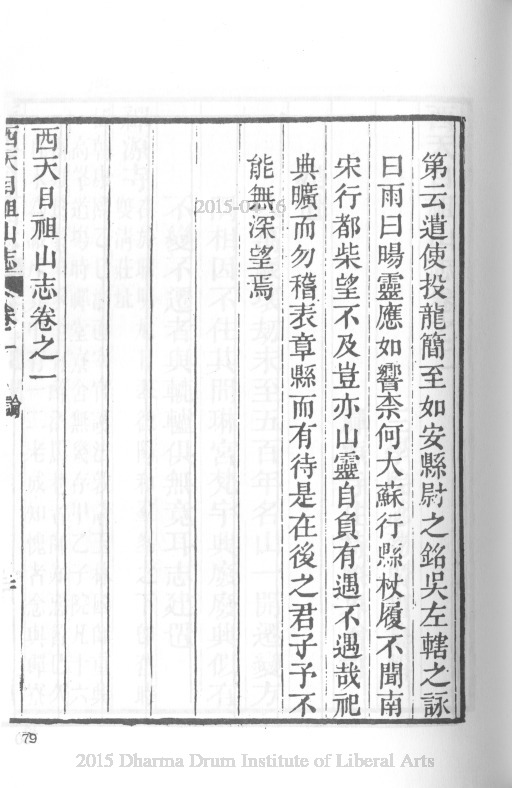 第云遣使投龍簡至如安縣尉之銘吳左轄之詠
曰雨曰暘靈應如響柰何大蘇行縣杖履不聞南
宋行都柴望不及豈亦山靈自負有遇不遇哉祀
典曠而勿稽表章縣而有待是在後之君子予不
能無深望焉
西天目祖山志卷之一
西天目祖山志 卷一 論
79
2015 Dharma Drum Institute of Liberal Arts